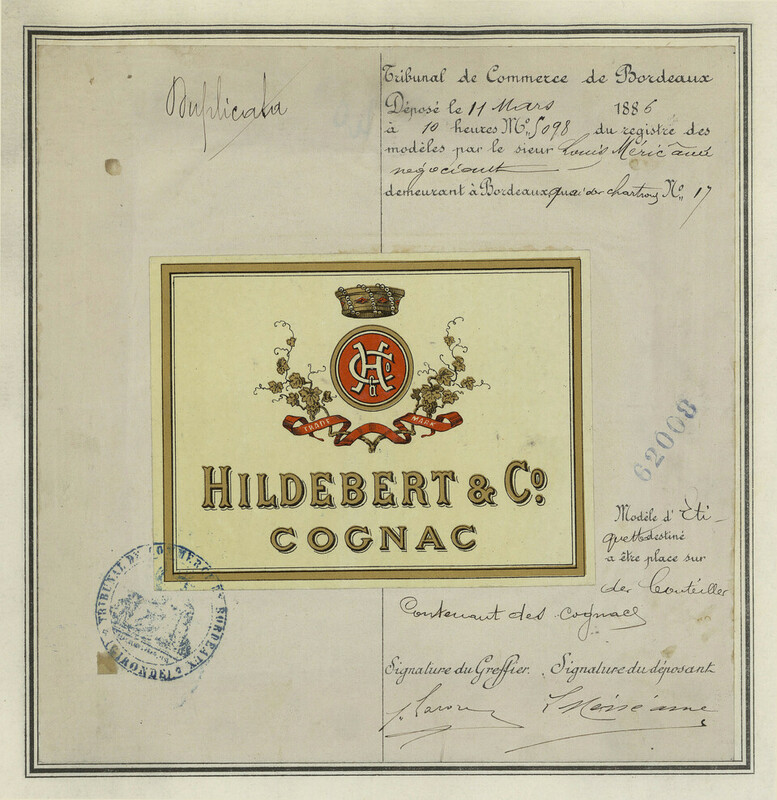 Duplicata
Tribunal de Commerce de Bordeaux
Déposé le 11 Mars 1886
à 10 heures No. 5098 du registre des
modèles par le sieur Louis Méric aîné
négociant
demeurant à Bordeaux quai des chartrons No. 17
H & Co
TRADE MARK
HILDEBERT & Co.
COGNAC
62008
Modèle d'Eti-
quette destiné
a être place sur
des bouteilles
Contenant des cognacs
TRIBUNAL DE COMMERCE DE BORDEAUX
(GIRONDE)
Signature du Greffier. Signature du déposant
L Méric aîné